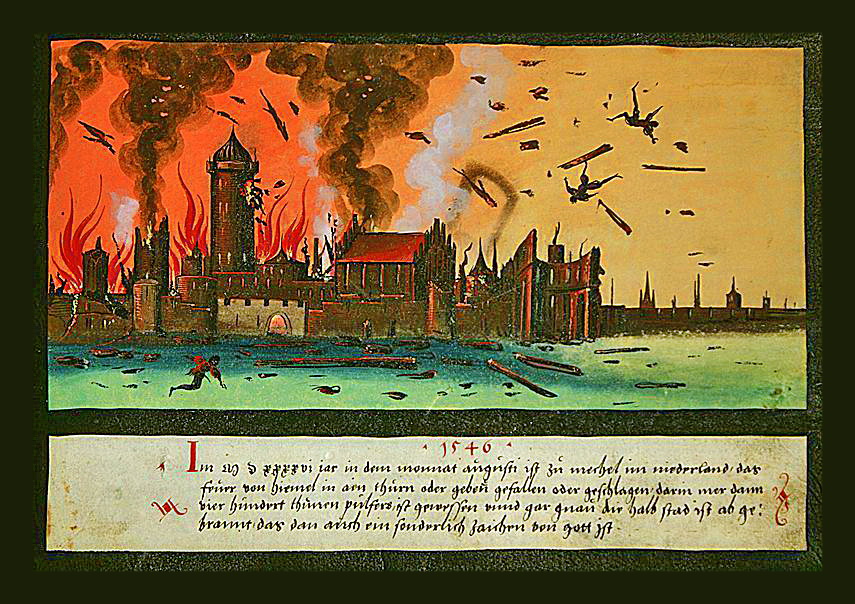 · 1546 ·
Im M D xxxxvi iar in dem monnat augusti ist zu mechel im niderland, das
feuer von hiemel in ain thurn oder gebeu gefallen oder geschlagen, darin mer dann
vier hundert thunen pulfers, ist gewessen vnnd gar gnau die halb stad ist ab ge:
brannt, das dan auch ein sonderlich zaichen von gott ist